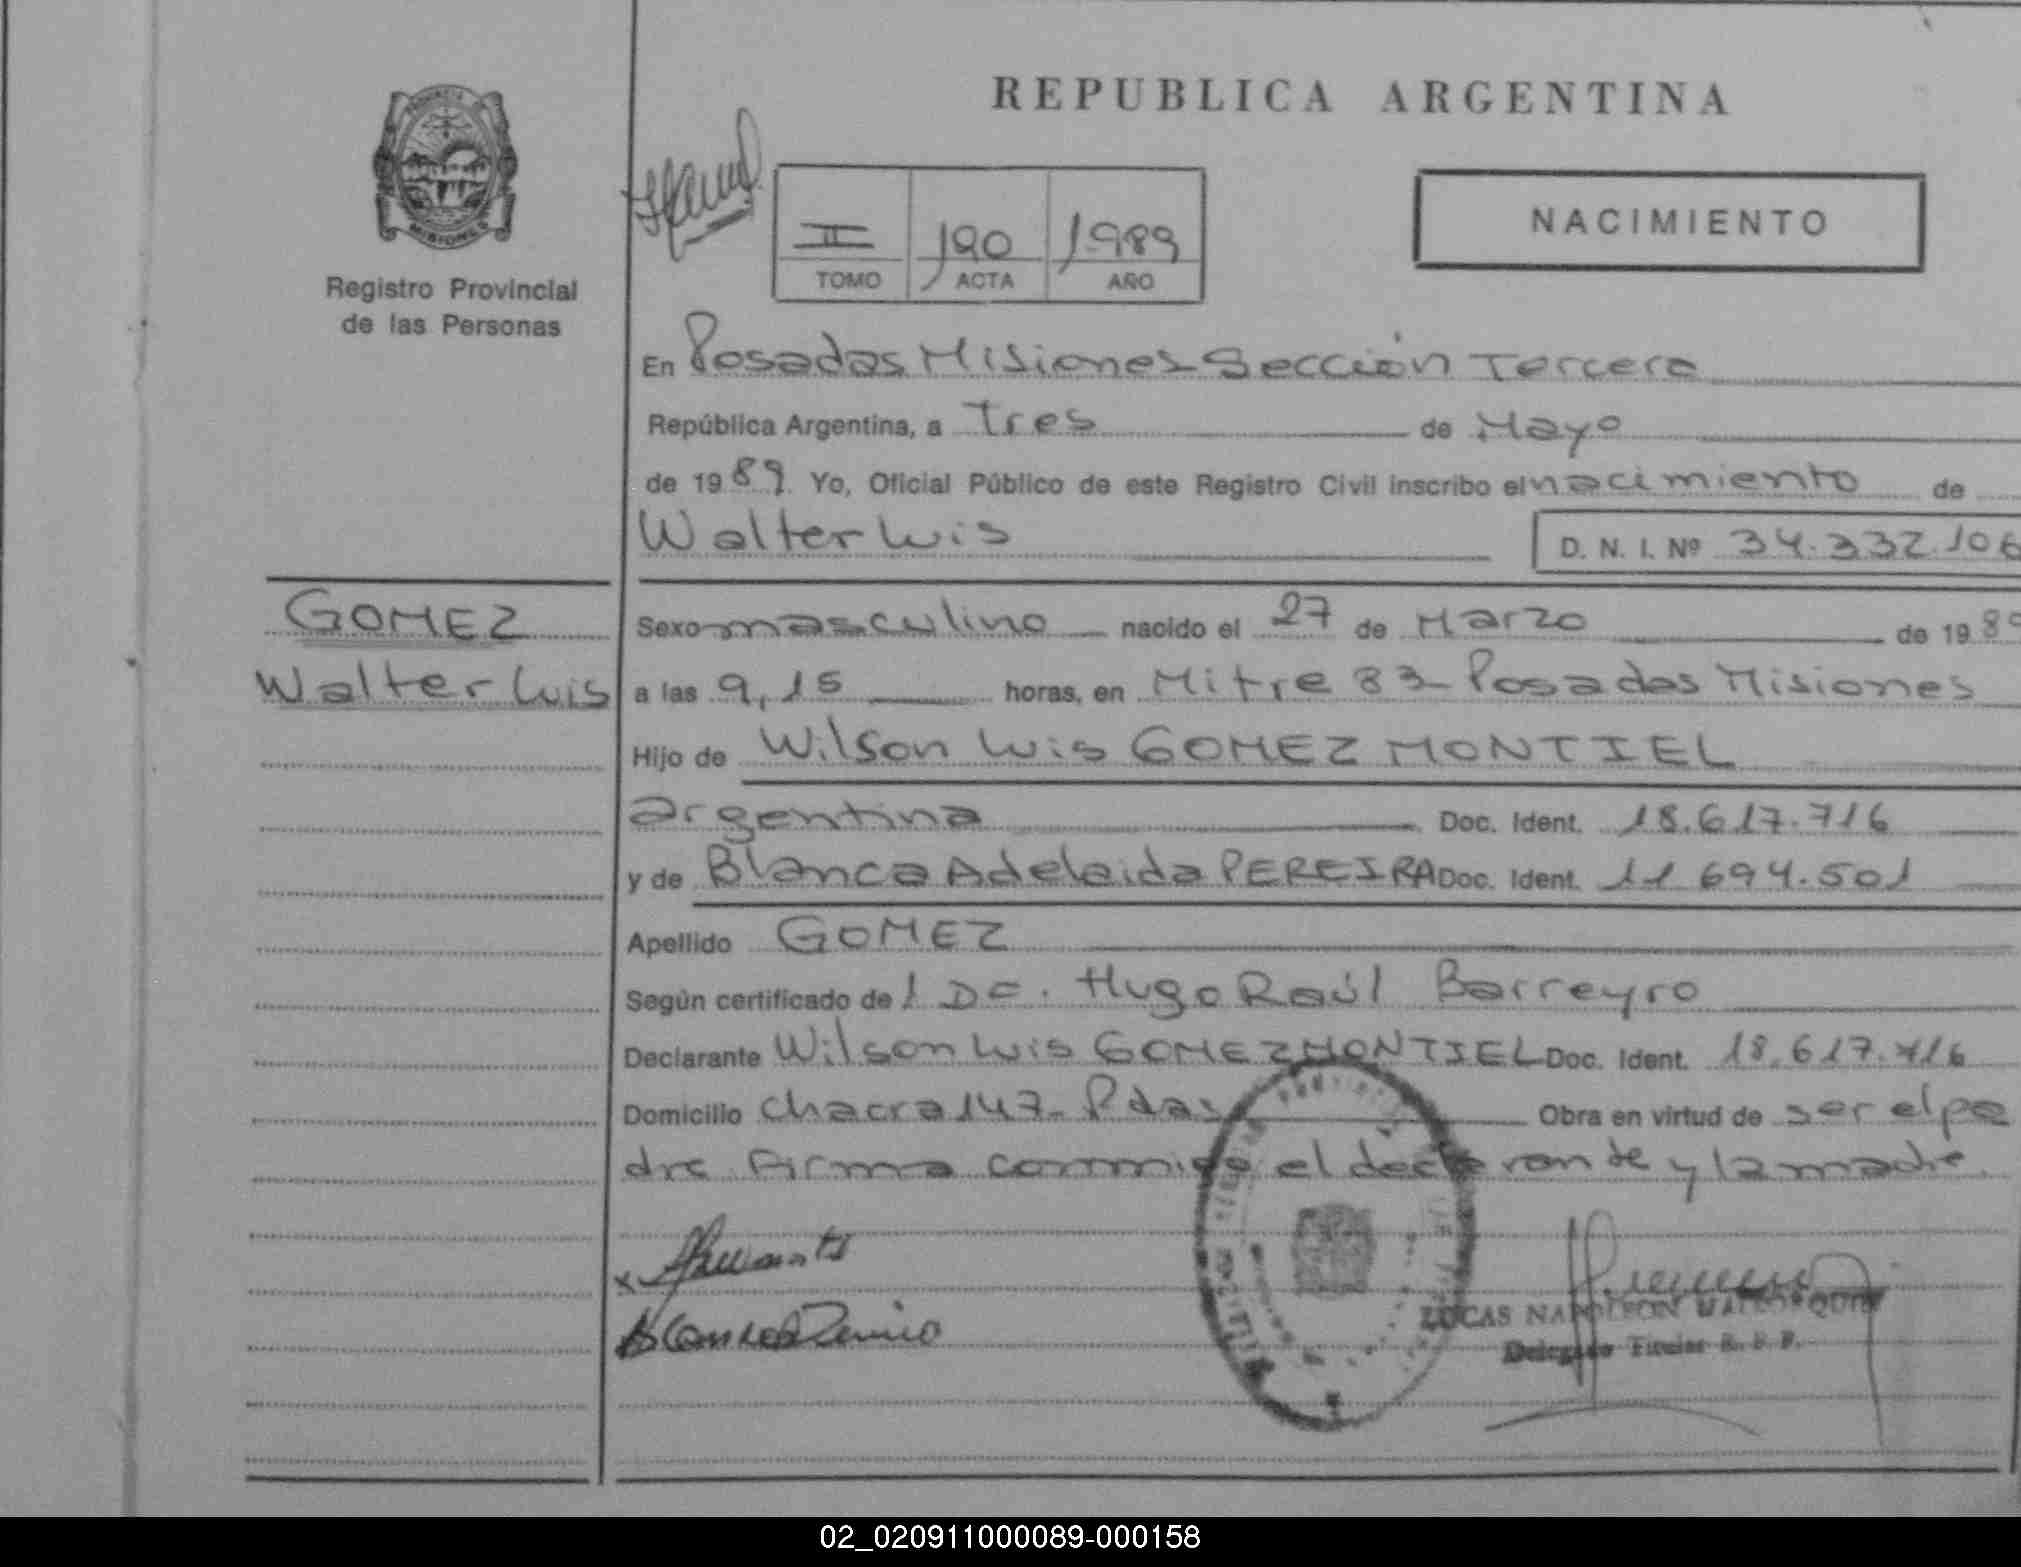 REPUBLICA ARGENTINA
PROVINCIA
MISIONES
Registro Provincial
de las Personas
II 190 1989
TOMO ACTA AÑO
NACIMIENTO
En Posadas Misiones Sección Tercera
República Argentina, a Tres de Mayo
de 1989. Yo, Oficial Público de este Registro Civil inscribo el nacimiento de
Walter Luis D. N. I. Nº 34.332.106
GOMEZ
Walter Luis
Sexo masculino nacido el 27 de Marzo de 1989
a las 9,15 horas, en Mitre 83- Posadas Misiones
Hijo de Wilson Luis GOMEZ MONTIEL
argentina Doc. Ident. 18.617.716
y de Blanca Adelaida PEREIRA Doc. Ident. 11 694.501
Apellido GOMEZ
Según certificado de l Dr. Hugo Raúl Barreyro
Declarante Wilson Luis GOMEZ MONTIEL Doc. Ident. 18.617.716
Domicilio Chacra 147- Pdas Obra en virtud de ser el pa
dre Firma conmigo el declarante y la madre.
LUCAS NAPOLEON
Delegado Titular R. P. P.
02_020911000089-000158